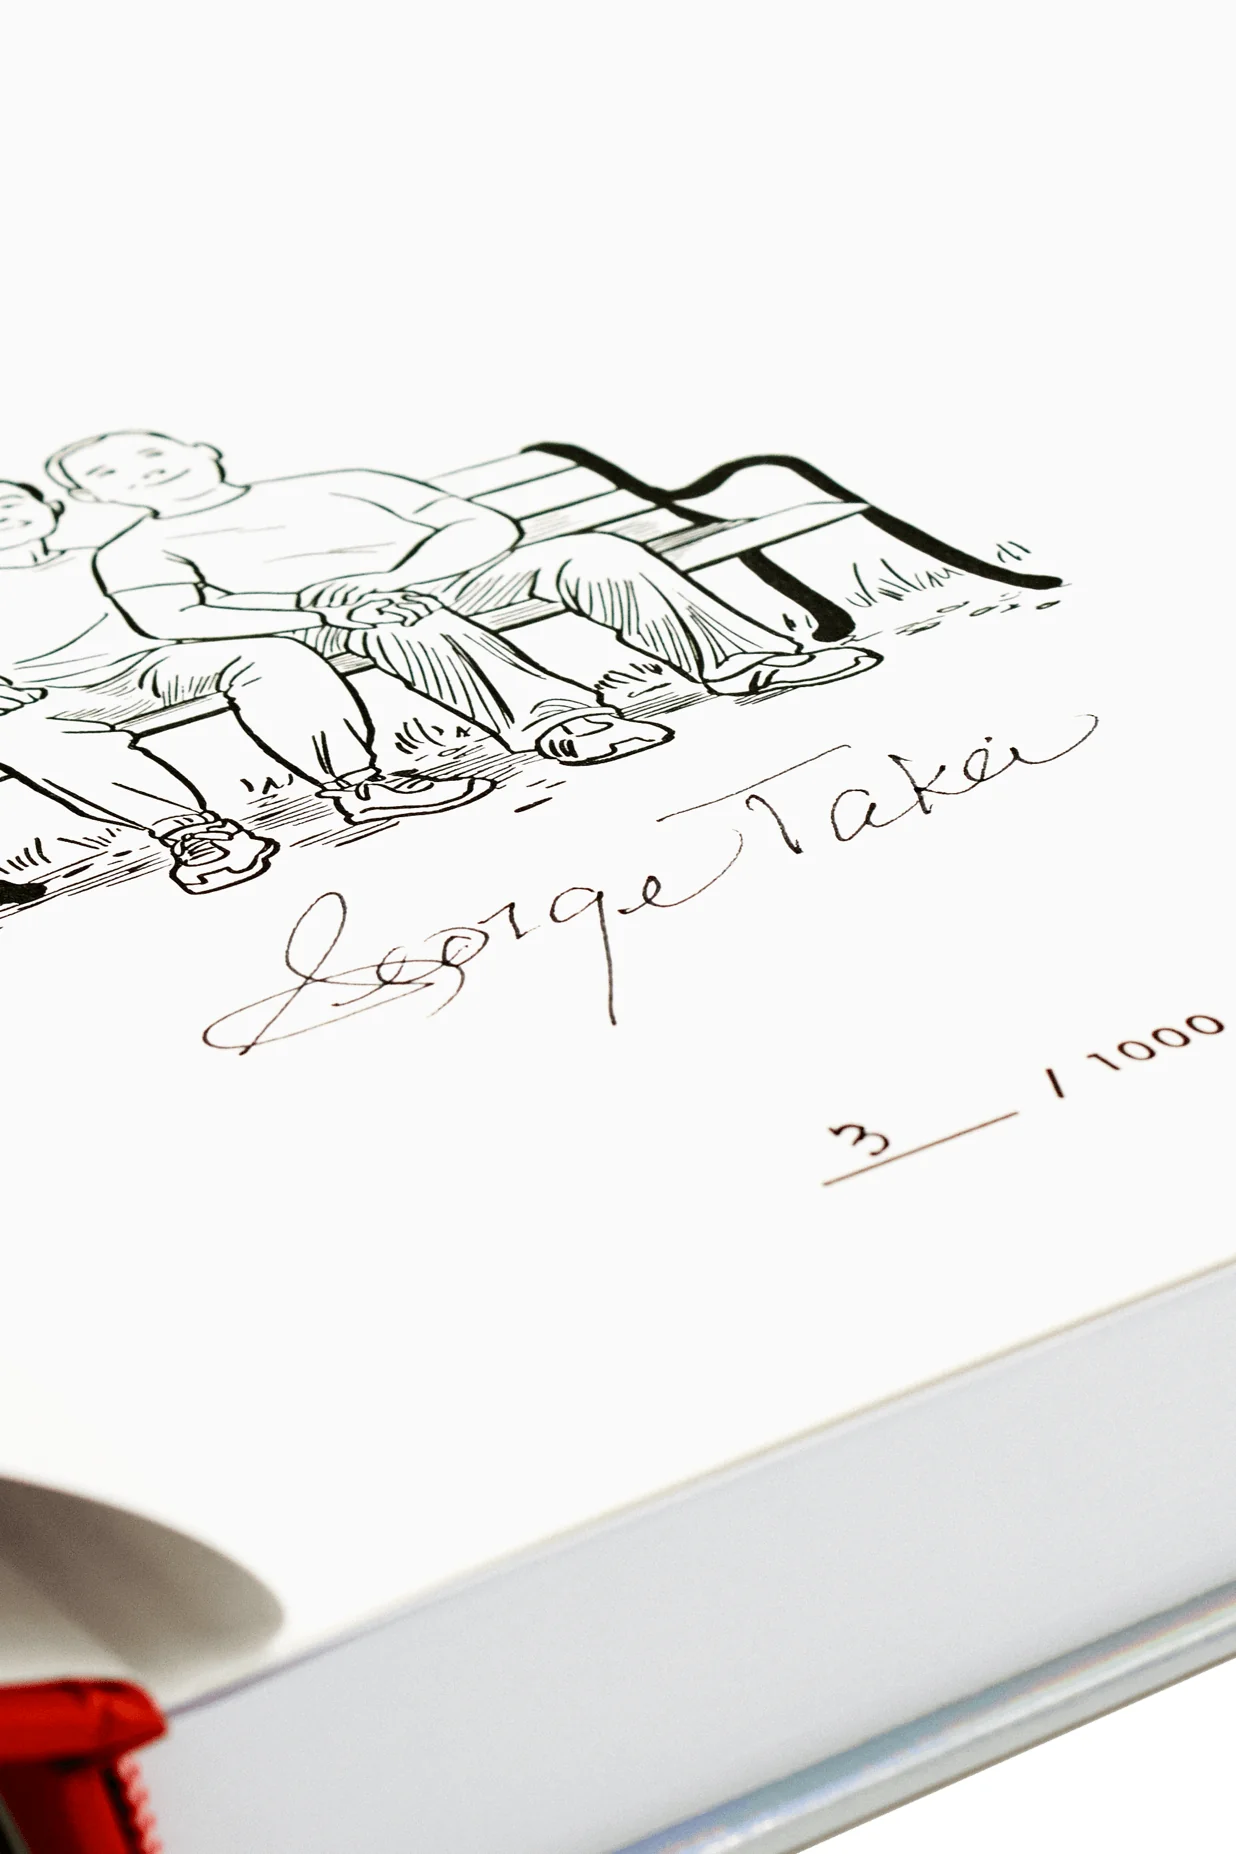 George Takei
3 / 1000